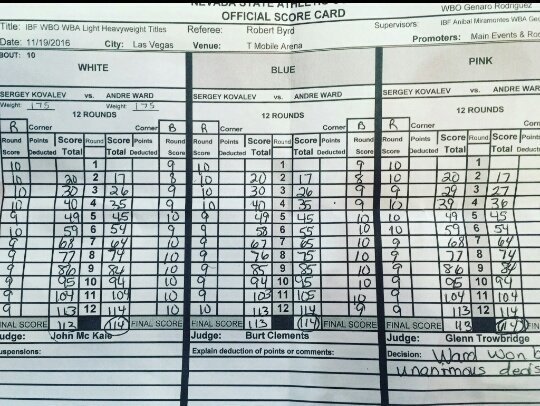 NEVADA STATE ATHLETIC
OFFICIAL SCORE CARD
Title: IBF WBO WBA Light Heavyweight Titles Referee: Robert Byrd Supervisors WBO Genaro Rodriguez
IBF Anibal Miramontes WBA
Date: 11/19/2016 City: Las Vegas Venue: T Mobile Arena Promoters: Main Events &
BOUT: 10
WHITE BLUE PINK
SERGEY KOVALEV vs. ANDRE WARD SERGEY KOVALEV vs. ANDRE WARD SERGEY KOVALEV vs. ANDRE WARD
Weight: 175 Weight: 175
12 ROUNDS 12 ROUNDS 12 ROUNDS
R Corner Corner B R Corner Corner B R Corner
Round Points Score Round Score Points Round Round Points Score Round Score Points Round Round Points Score Round Score
Score Deducted Total Total Deducted Score Score Deducted Total Total Deducted Score Score Deducted Total Total
10 1 9 10 1 9 10 1
10 20 2 17 8 10 20 2 17 8 10 20 2 17
10 30 3 26 9 10 30 3 26 9 9 29 3 27
10 40 4 35 9 10 40 4 35 9 10 39 4 36
9 49 5 45 10 9 49 5 45 10 10 49 5 45
10 59 6 54 9 9 58 6 55 10 10 59 6 54
9 68 7 64 10 9 67 7 65 10 9 68 7 64
9 77 8 74 10 9 76 8 75 10 9 77 8 74
9 86 9 84 10 9 85 9 85 10 9 86 9 84
9 95 10 94 10 9 94 10 95 10 9 95 10 94
9 104 11 104 10 9 103 11 105 10 9 104 11 104
9 113 12 114 10 113 12 114 9 9 113 12 114
FINAL SCORE 113 114 FINAL SCORE FINAL SCORE 113 114 FINAL SCORE FINAL SCORE 113 114
Judge: John Mc Kaie Judge: Burt Clements Judge: Glenn Trowbridge
Explain deduction of points or comments: Decision: Ward Won
unanimous